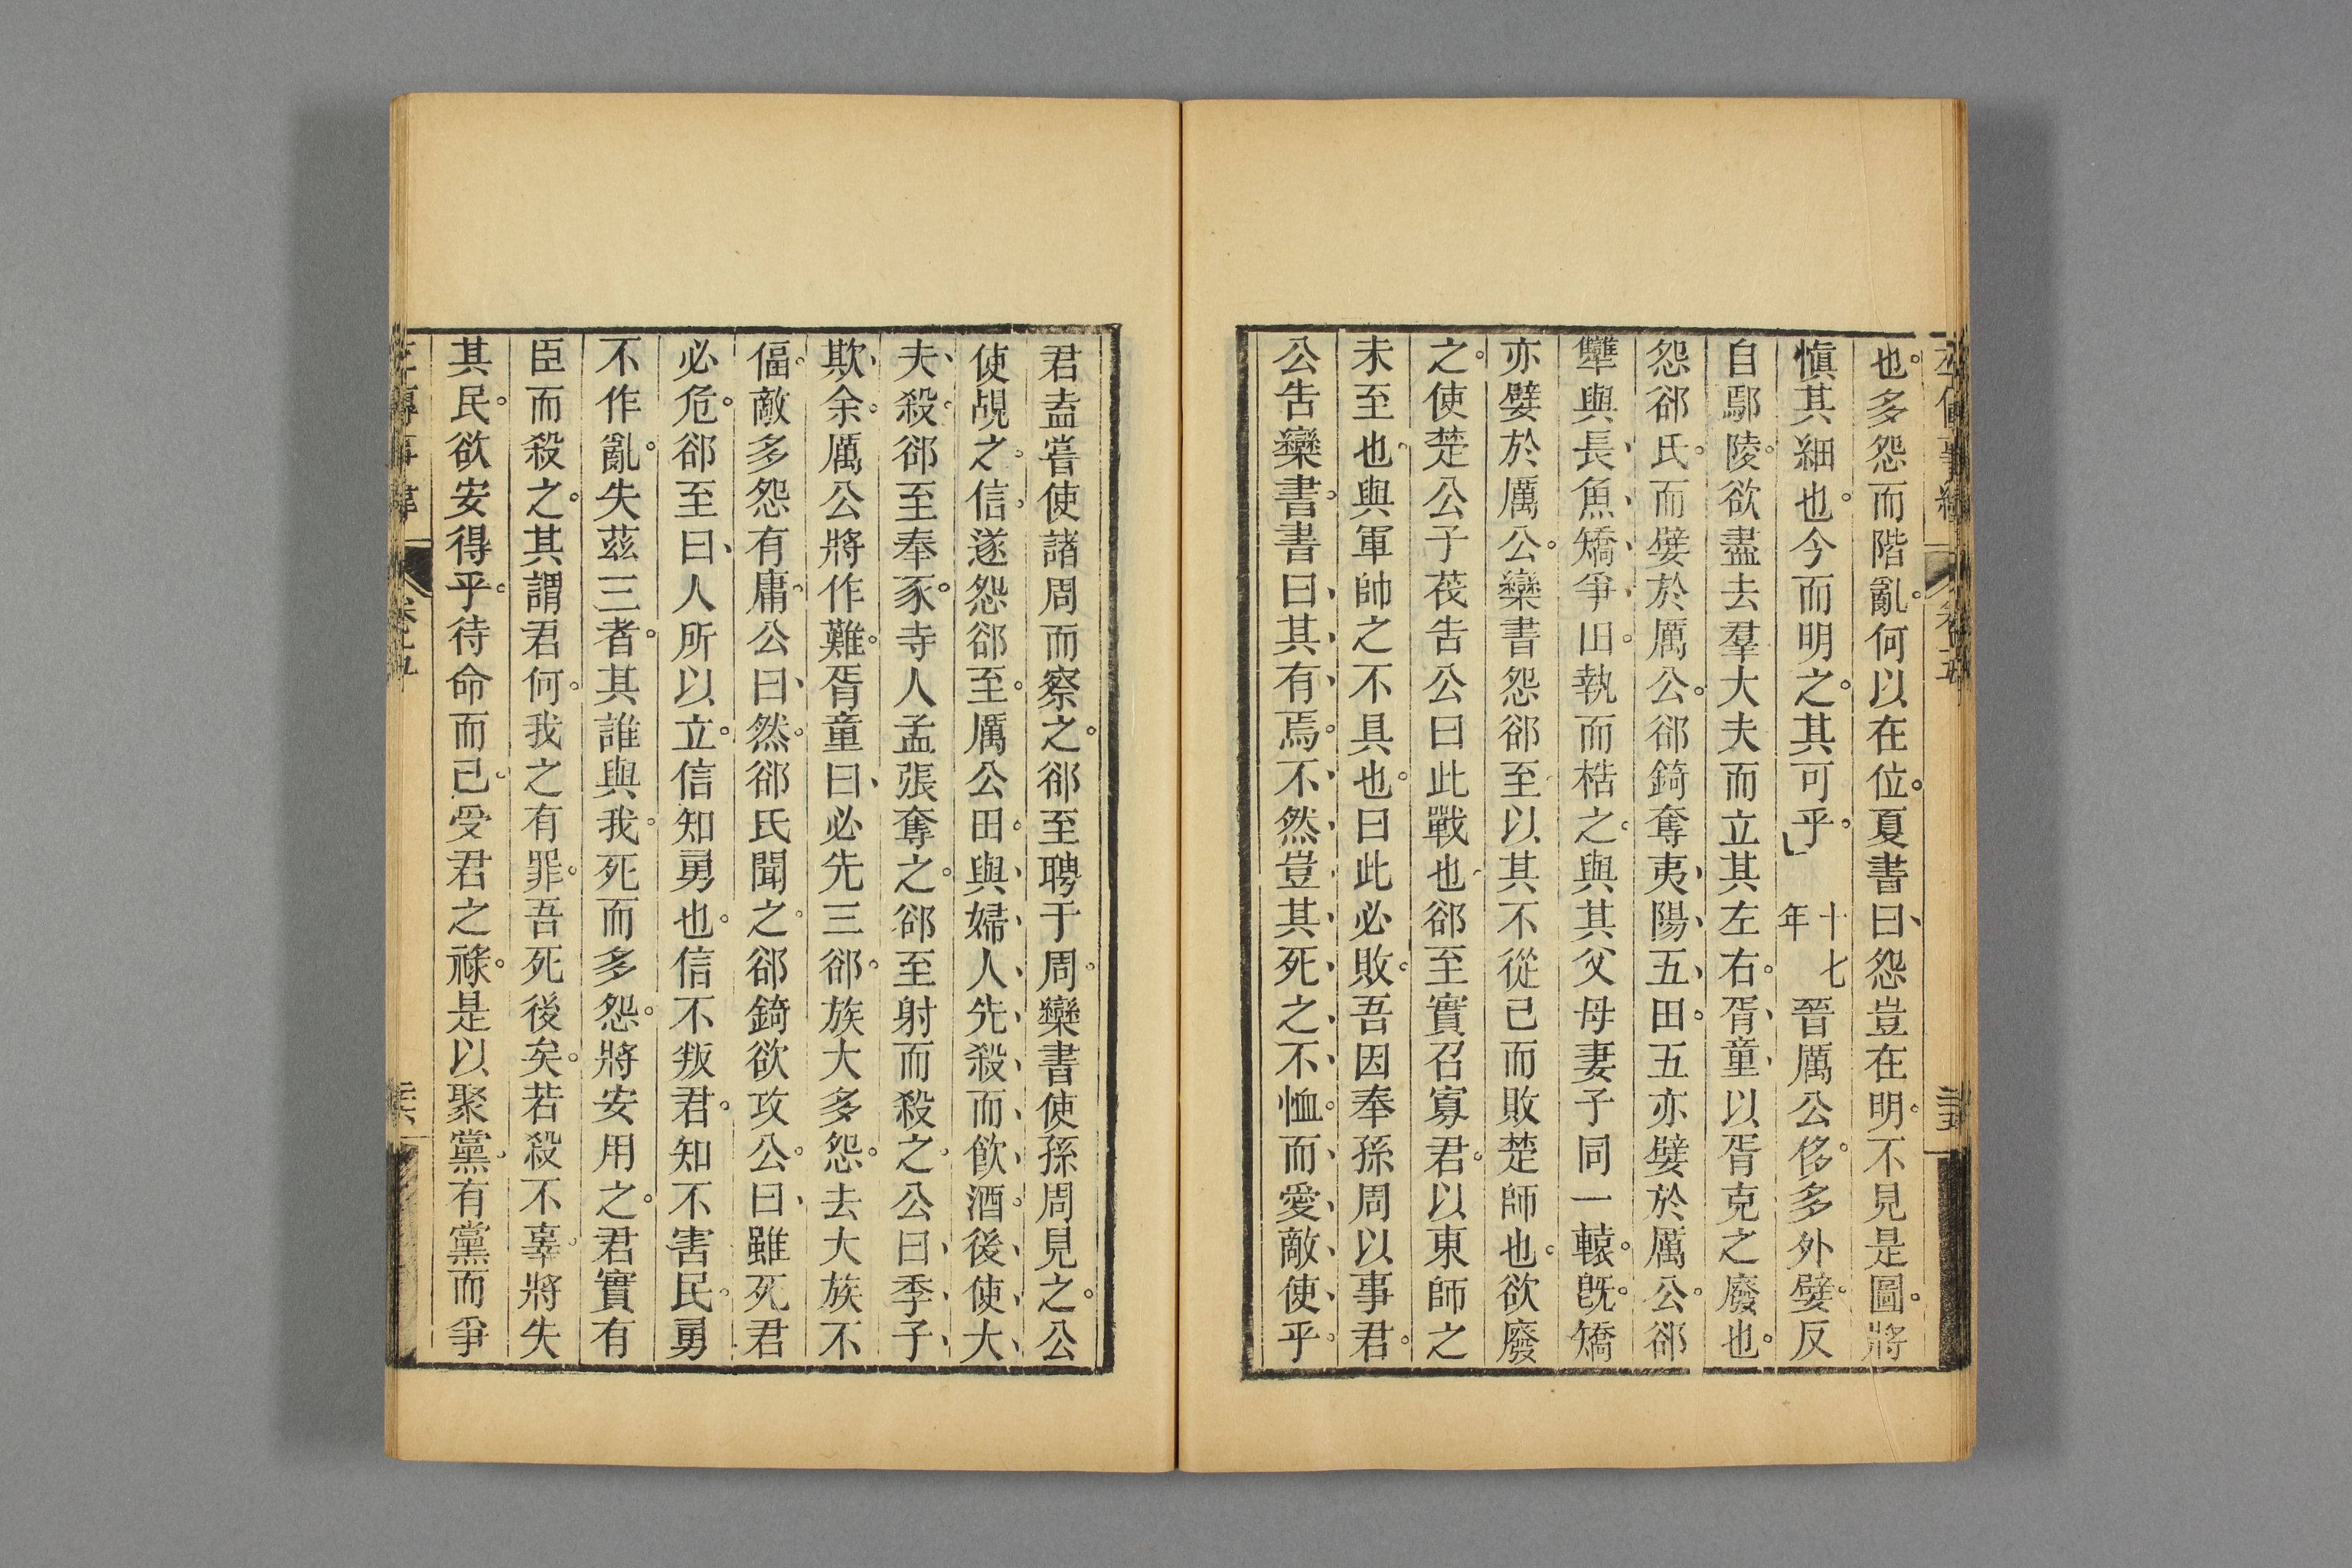 也。多怨而階亂。何以在位。夏書曰、怨豈在明。不見是圖。將
愼其細也。今而明之。其可乎。」十七年晉厲公侈。多外嬖。反
自鄢陵。欲盡去羣大夫而立其左右。胥、童、以胥克之廢也。
怨郤氏。而嬖於厲公。郤錡奪夷、陽、五、田。五亦嬖於厲公。郤
犨與長、魚、矯、爭田。執而梏之。與其父母妻子同一轅。旣。矯
亦嬖於厲公。欒書怨郤至。以其不從己而敗楚師也。欲廢
之。使楚公子茷告公曰此戰也。郤至實召寡君。以東師之
未至也。與軍帥之不具也。曰此必敗。吾因奉孫周以事君。
公告欒書。書曰、其、有、焉。不、然、豈、其、死、之、不、恤。而、愛、敵、使、乎。
君盍嘗使諸周而察之。郤至聘于周。欒書使孫周見之。公
使覘之。信。遂怨郤至。厲公田。與、婦、人、先、殺、而、飮、酒。後、使、大、
夫、殺。郤至奉豕。寺人孟張奪之。郤至射而殺之。公曰、季、子、
欺、余。厲公將作難。胥童曰、必先三郤。族大多怨。去大族不
偪。敵多怨有庸。公曰、然。郤氏聞之。郤錡欲攻公。曰、雖死君
必危。郤至曰、人所以立。信知勇也。信不叛君。知不害民。勇
不作亂。失茲三者。其誰與我。死而多怨。將安用之。君實有
臣而殺之。其謂君何。我之有罪。吾死後矣。若殺不辜。將失
其民。欲安得乎。待命而已。受君之祿。是以聚黨。有黨而爭